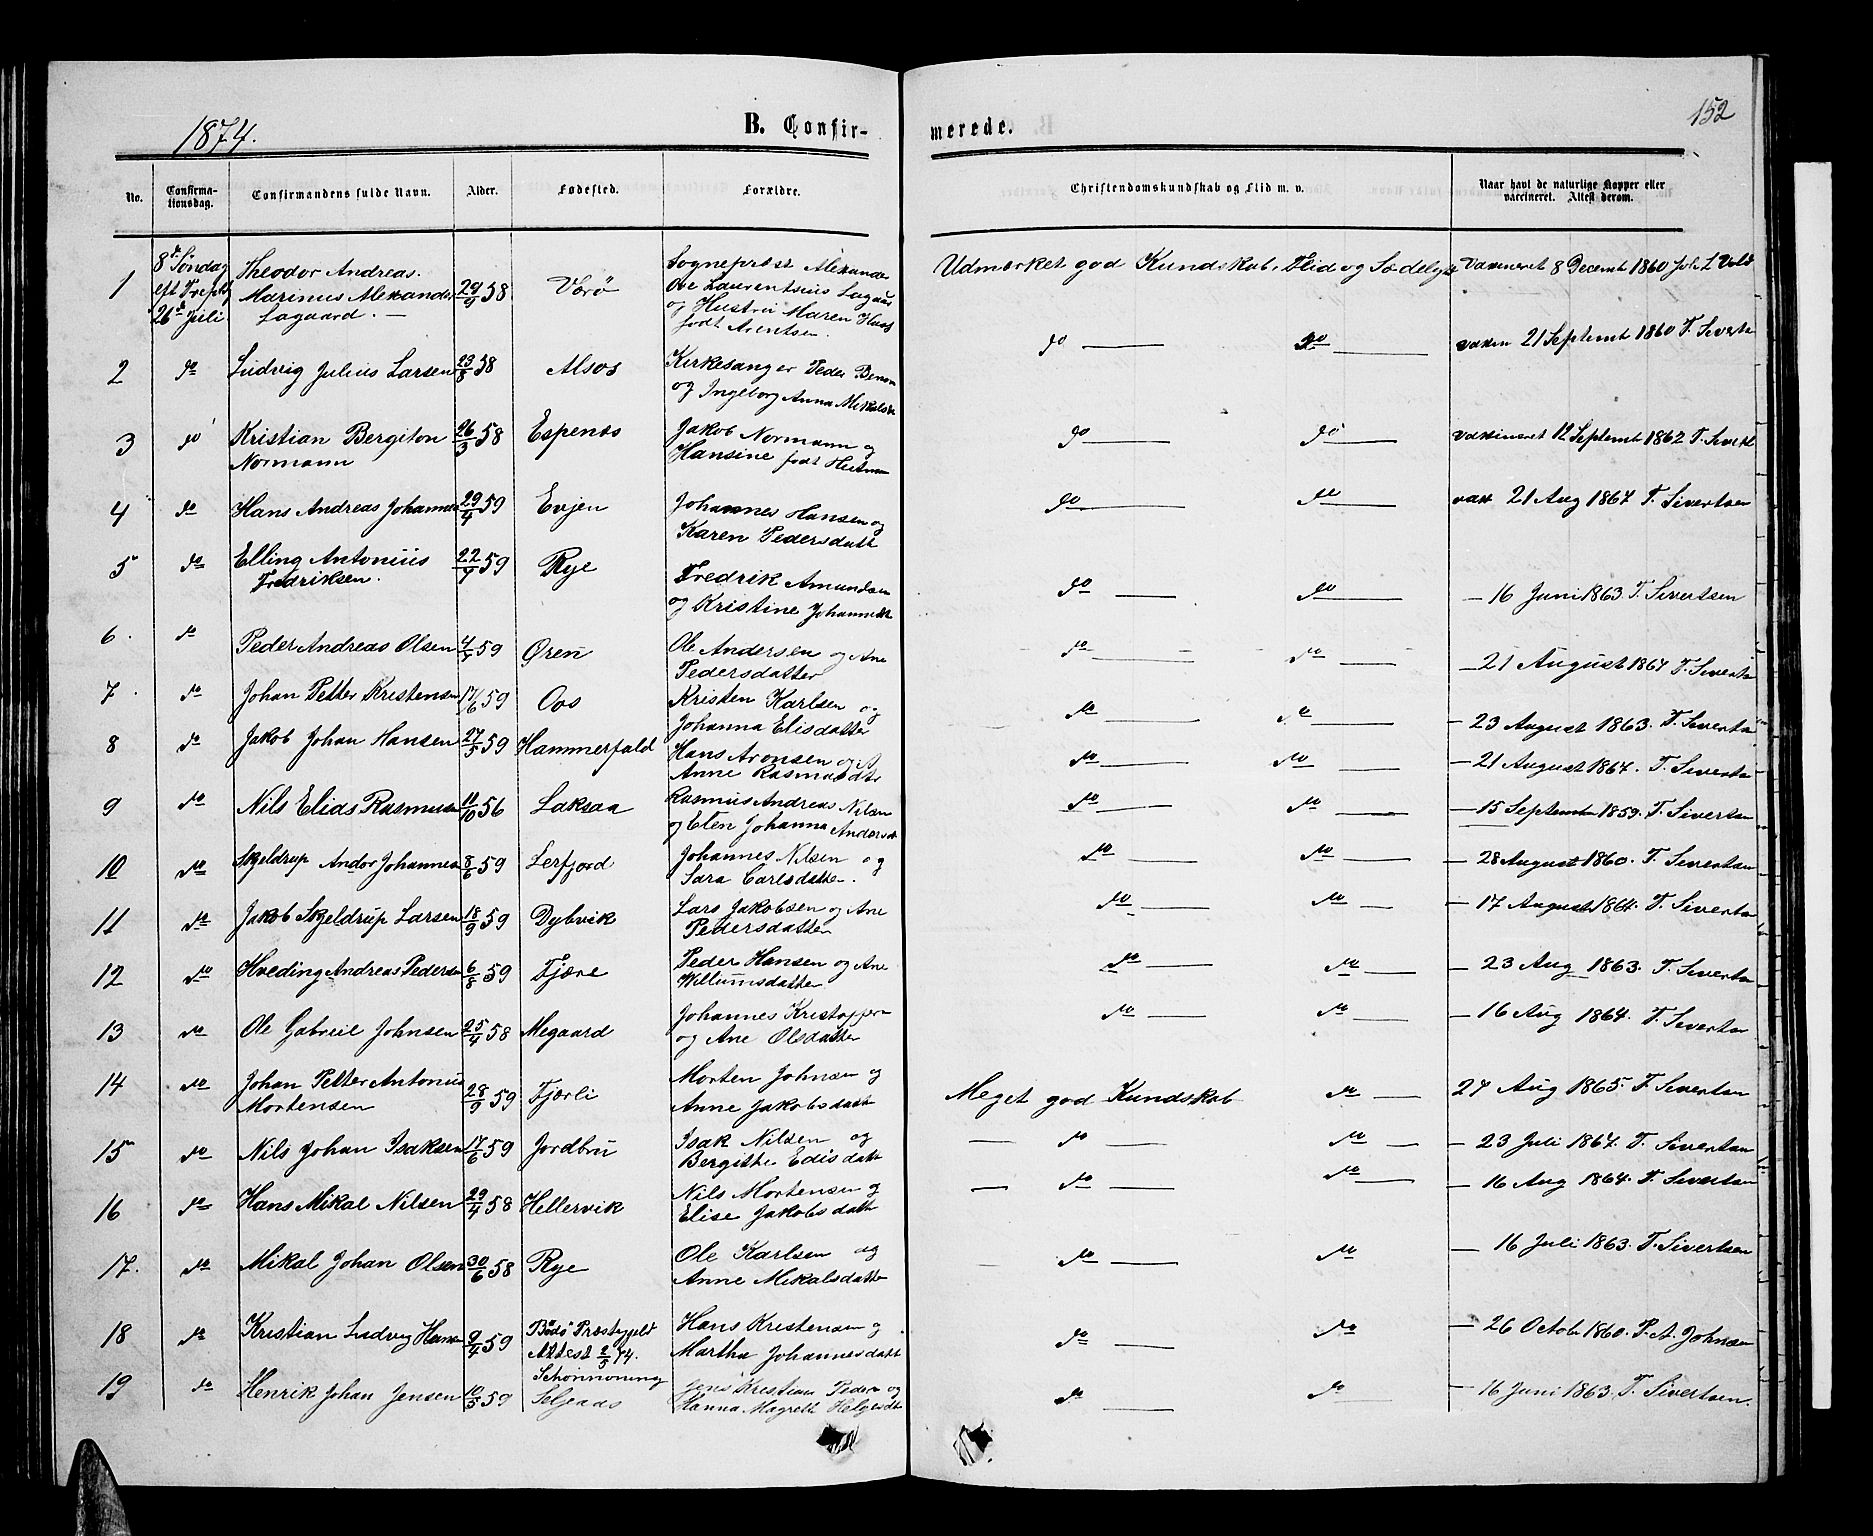 1874.
B. Confir-
merede.
152
No.
Confirma-
tionsdag.
Confirmandens fulde Navn.
Alder.
Fødested.
Forældre.
Christendomskundskab og Flid m. v.
Naar havt de naturlige Kopper eller
vaccineret. Attest derom.
1 8de Søndag eft Trefsth 26de Juli Theodor Andreas Marinus Alexander Lagaard. 29/9 58 Værø Sognepræst Alexander Ole Laurentsius Lagaard og Hustru Maren født Arentsen. Udmærket god Kundskab, Flid og Sædelighed Vaxineret 8 Decemt 1860
2 do Ludvig Julius Larsen 23/8 58 Alsos Kirkesanger Peder og Ingeborg Anna do do vaxin 21 Septemt 1860 T. Siverts
3 do Kristian Bergiton Normann 26/3 58 Espenæs Jakob Normann og Hansine født do do vaxineret 12 Septemt 1862 T. Sivert
4 do Hans Andreas Johannes 29/4 59 Evjen Johannes Hansen og Karen Pedersdatt do do vax 21 Aug 1864 T. Sivertsen
5 do Elling Antonius Fredriksen. 22/4 59 Rye Fredrik Amundsen og Kristine do do — 16 Juni 1863. T. Sivertsen
6. do Peder Andreas Olsen 4/4 59 Øren Ole Andersen og Ane Pedersdatter do do — 21 August 1864 T. Siverts
7. do Johan Petter Kristensen 17/6 59 Oos Kristen Karlsen og Johanna Elisdatter do do — 23 August 1863. T. Siverts
8 do Jakob Johan Hansen 27/5 59 Hammerfald Hans Aronsen og Anne Rasmusdtr do do — 21 August 1864. T. Siverts
9 do Nils Elias Rasmusen 11/10 56 Laksaa Rasmus Andreas Nilsen og Elen Johanna Andersdt do do — 15 Septemt 1859. T. Sivertsen
10 do Skjeldrup Andor Johannesen 8/6 59 Lerfjord Johannes Nilsen og Sara Carlsdatter. do do — 28 August 1860. T. Sivertsen
11 do Jakob Skjeldrup Larsen 18/9 59 Dybvik Lars Jakobsen og Ane Pedersdatter do do — 17 August 1864. T. Sivertsen
12 do Hveding Andreas Pedersen 6/8 59 Fjære Peder Hansen og Ane Willumsdatter do do — 23 Aug 1863. T. Sivertsen
13 do Ole Gabreil Johnsen 25/4 58 Megaard Johannes Kristoffer og Ane Olsdatter do do — 16 Aug 1864. T. Sivertsen
14 do Johan Petter Antonius Mortensen 28/9 59 Fjærli Morten Johnsen og Anne Jakobsdatt Meget god Kundskab do 24 Aug 1865. T. Sivertsen
15 do Nils Johan Isaksen 17/6 59 Jordbru Isak Nilsen og Bergitte Edisdatt — do do — 23 Juli 1864. T. Sivertsen
16 do Hans Mikal Nilsen 29/4 58 Hellervik Nils Mortensen og Elise Jakobsdatt — do do — 16 Aug 1864. T. Sivertsen
17. do Mikal Johan Olsen 30/6 58 Rye Ole Karlsen og Anne Mikalsdatter do do — 16 Juli 1863. T. Sivertsen
18 do Kristian Ludvig Hansen 9/4 59 Bodø Præstegjeld Attest 2/5 74. Schønnoning Hans Kristensen og Martha Johannesdatt do do — 26 Octob 1860. P. A. Johnsen
19 do Henrik Johan Jensen 10/5 59 Seljeaas Jens Kristian Peders og Hanna Magrete Helgesdt do do — 16 Juni 1863. T. Sivertsen.